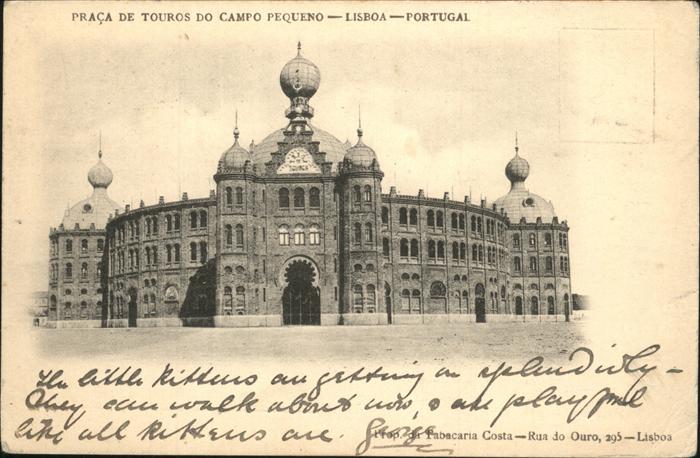 PRAÇA DE TOUROS DO CAMPO PEQUENO — LISBOA — PORTUGAL
The little kittens are getting on splendidly –
They can walk about now, & are playful
like all kittens are. George
Prop. da Tabacaria Costa — Rua do Ouro, 295 — Lisboa